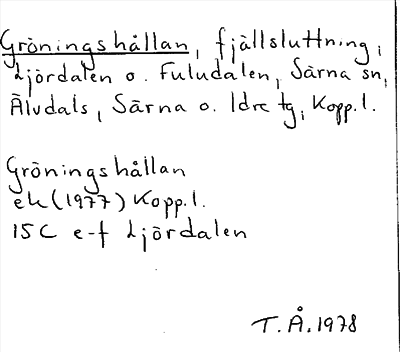 Gröningshållan, fjällsluttning i
Ljördalen o. Fuludalen, Särna sn,
Älvdals, Särna o. Idre tg, Kopp.l.
Gröningshållan
ek (1977) Kopp.l.
15C e-f Ljördalen
T.Å. 1978